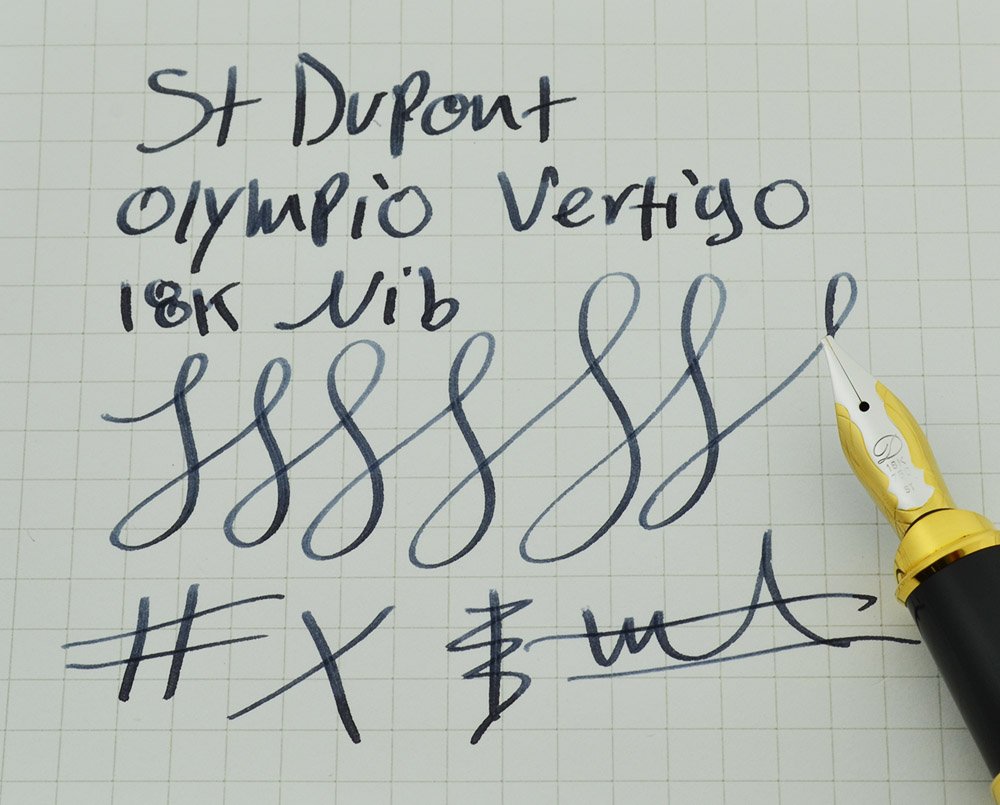 St Dupont
Olympio Vertigo
18K Nib